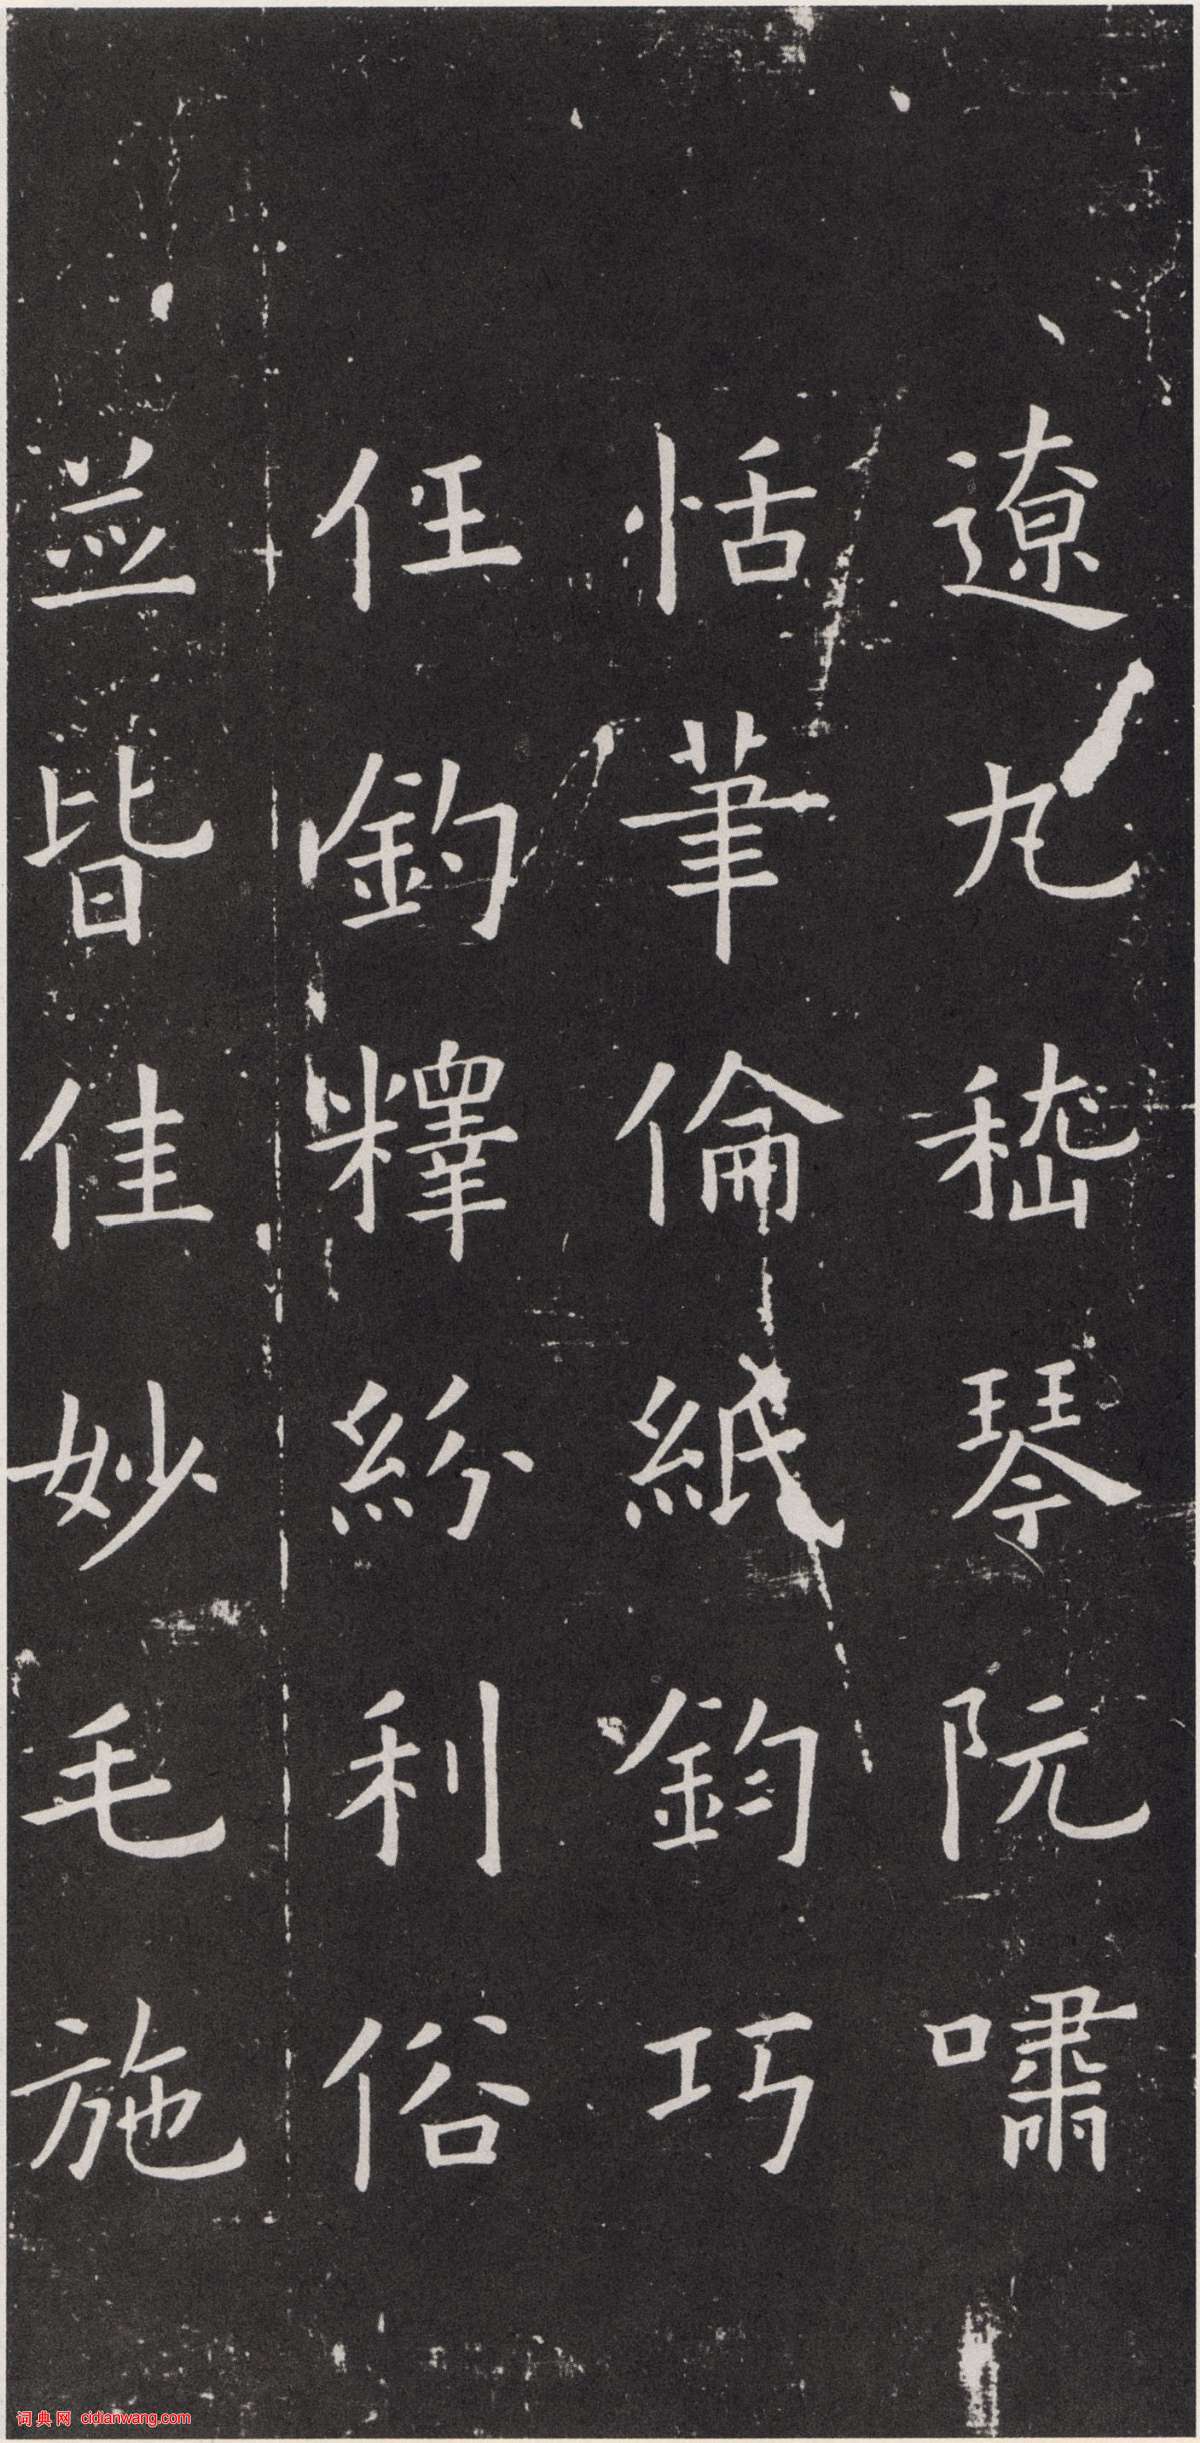 遼丸嵇琴阮嘯
恬筆倫紙鈞巧
任釣釋紛利俗
並皆佳妙毛施
词典网 cidianwang.com